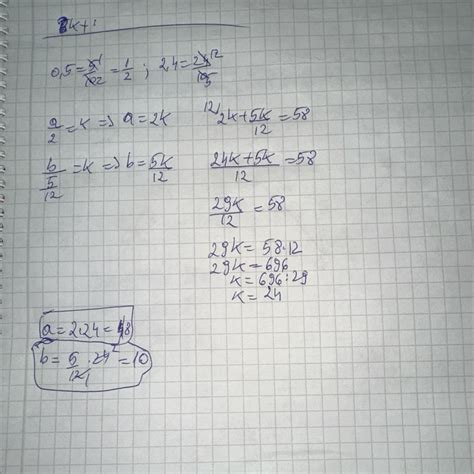 0,5=5/10=1/2 ; 2,4=24/10 12/5
a/2=k=>a=2k
b/(5/12)=k=>b=5k/12
12) 2k+5k/12=58
(24k+5k)/12=58
29k/12=58
29k=58·12
29k=696
k=696:29
k=24
a=2·24=48
b=5/12·24=10